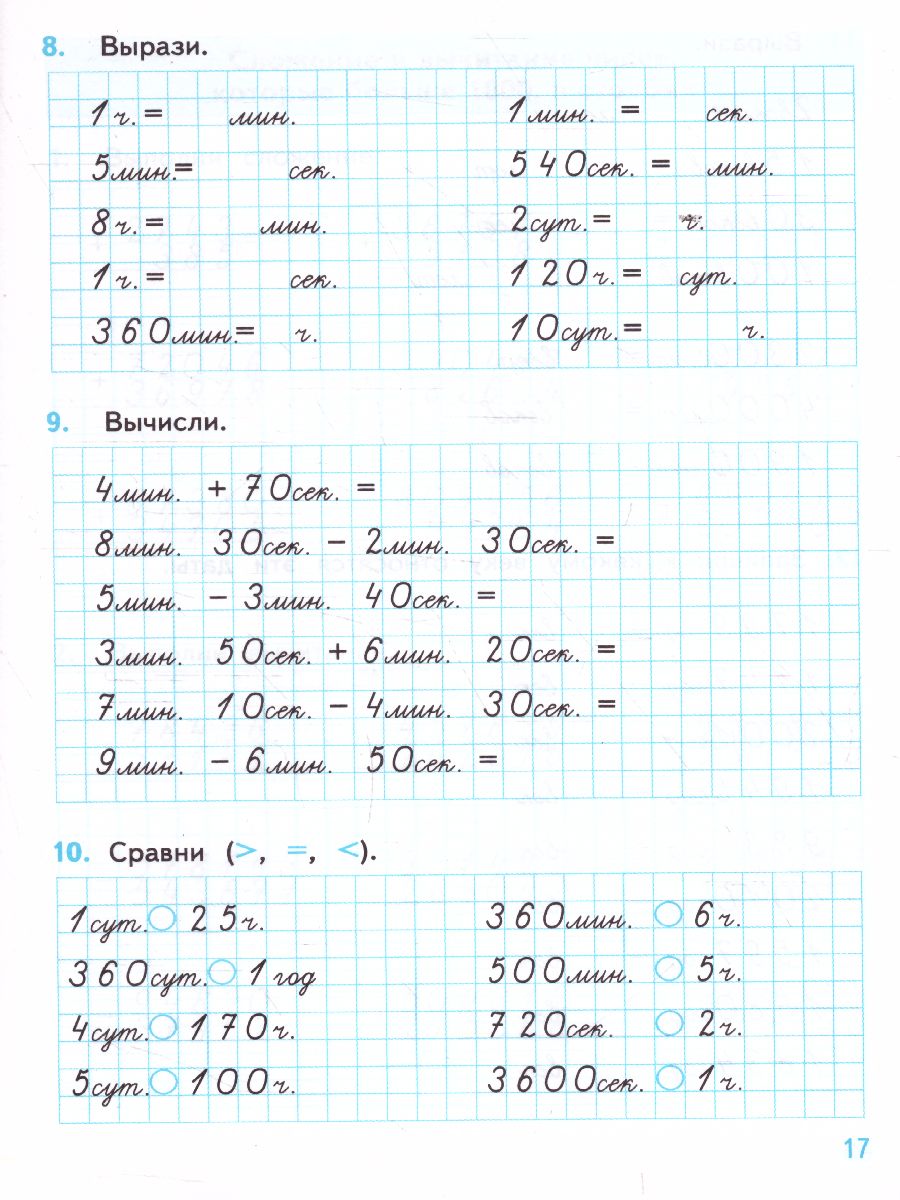 8. Вырази.
1 ч. = мин. 1 мин. = сек.
5 мин. = сек. 540 сек. = мин.
8 ч. = мин. 2 сут. = ч.
1 ч. = сек. 120 ч. = сут.
360 мин. = ч. 10 сут. = ч.
9. Вычисли.
4 мин. + 70 сек. =
8 мин. 30 сек. - 2 мин. 30 сек. =
5 мин. - 3 мин. 40 сек. =
3 мин. 50 сек. + 6 мин. 20 сек. =
7 мин. 10 сек. - 4 мин. 30 сек. =
9 мин. - 6 мин. 50 сек. =
10. Сравни (>, =, <).
1 сут. 25 ч. 360 мин. 6 ч.
360 сут. 1 год 500 мин. 5 ч.
4 сут. 170 ч. 720 сек. 2 ч.
5 сут. 100 ч. 3600 сек. 1 ч.
17